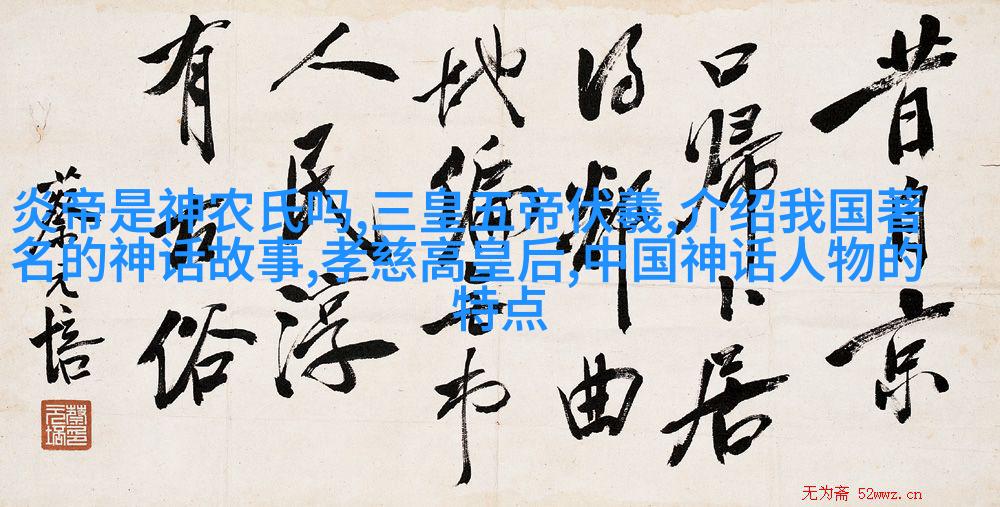 昔自京
口歸卜居
得鄰曲
地偏無市
人民淳
有古俗
蔡元培
炎帝是神农氏吗,三皇五帝伏羲,介绍我国著
名的神话故事,孝慈高皇后,中国神话人物的
特点
无为斋 52wwz.cn